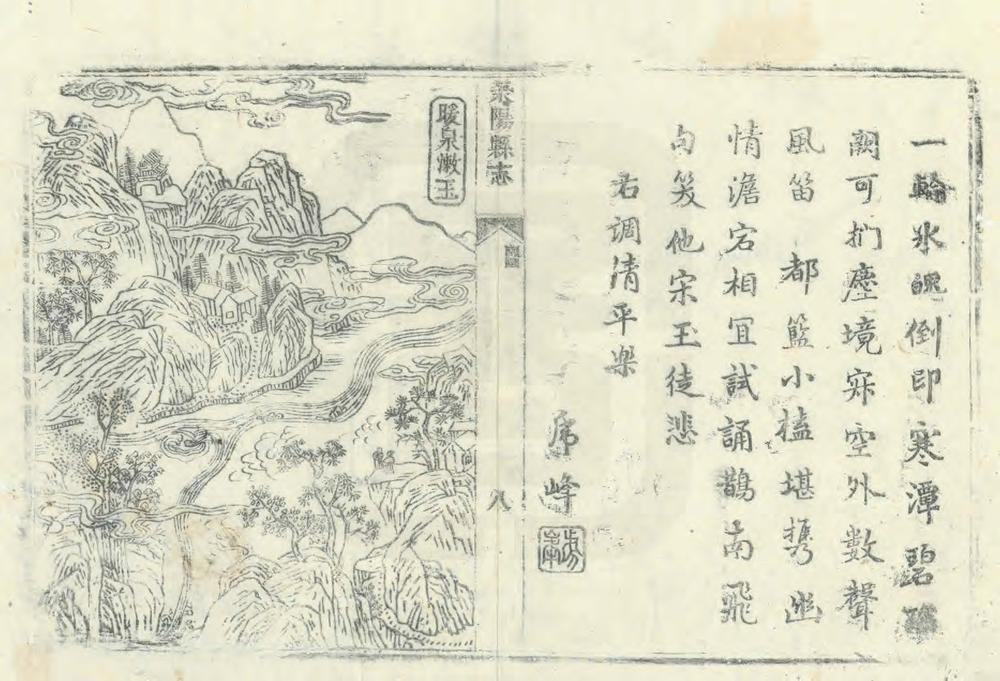 一輪氷魄倒印寒潭碧
闕可捫塵境寂空外數聲
風笛 都籃小榼堪攜幽
情澹宕相冝試誦鵲南飛
句笑他宋玉徒悲
右調清平樂
峰
陽縣志
圖
八
暖泉漱玉